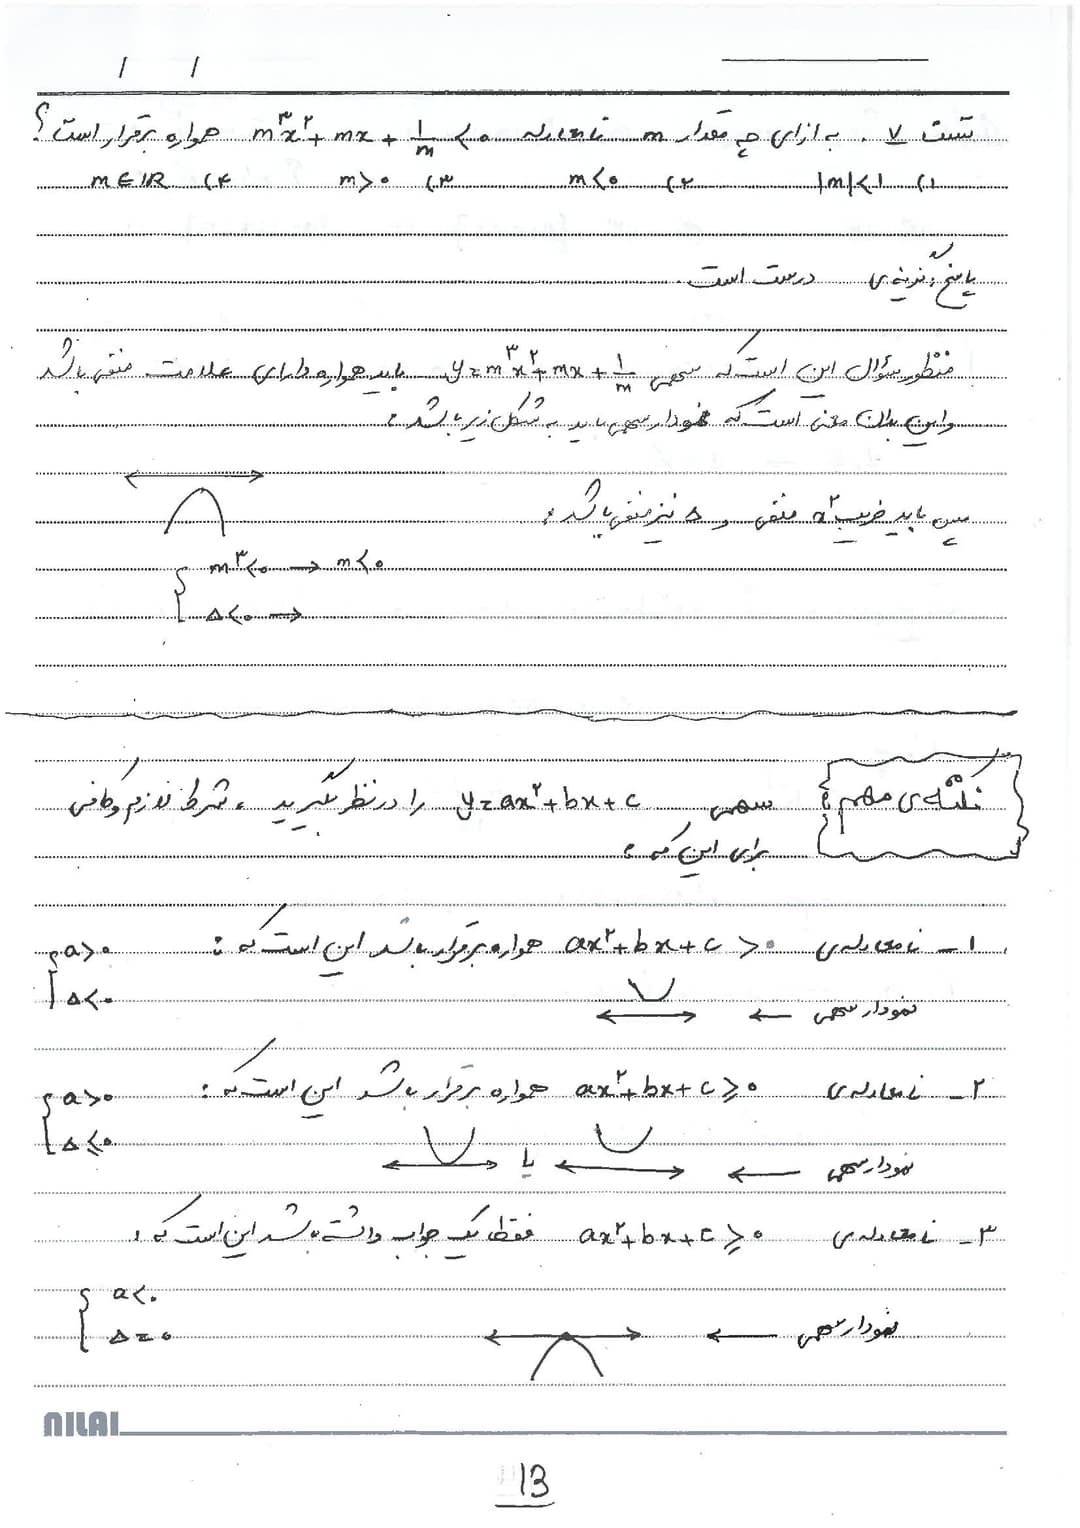 / /
تست ۷ . به ازای چه مقدار m نامعادله m³x² + mx + 1/m < 0 همواره برقرار است؟
۱) |m|<1 ۲) m<0 ۳) m>0 ۴) m∈IR
پاسخ: گزینه‌ی درست است.
منظور سؤال این است که سهمی y=m³x²+mx+1/m باید همواره دارای علامت منفی باشد
و این بدان معنی است که نمودار سهمی باید به شکل زیر باشد:
پس باید ضریب x² منفی و Δ نیز منفی باشد:
m³<0 → m<0
Δ<0 →
نکته‌ی مهم: سهمی y=ax²+bx+c را در نظر بگیرید، شرط لازم و کافی
برای این که:
۱- نامعادله‌ی ax²+bx+c > 0 همواره برقرار باشد این است که: a>0
Δ<0
نمودار سهمی ←
۲- نامعادله‌ی ax²+bx+c ≥ 0 همواره برقرار باشد این است که: a>0
Δ≤0
نمودار سهمی ← یا
۳- نامعادله‌ی ax²+bx+c ≥ 0 فقط یک جواب داشته باشد این است که:
a<0
Δ=0
نمودار سهمی ←
NILAI
13